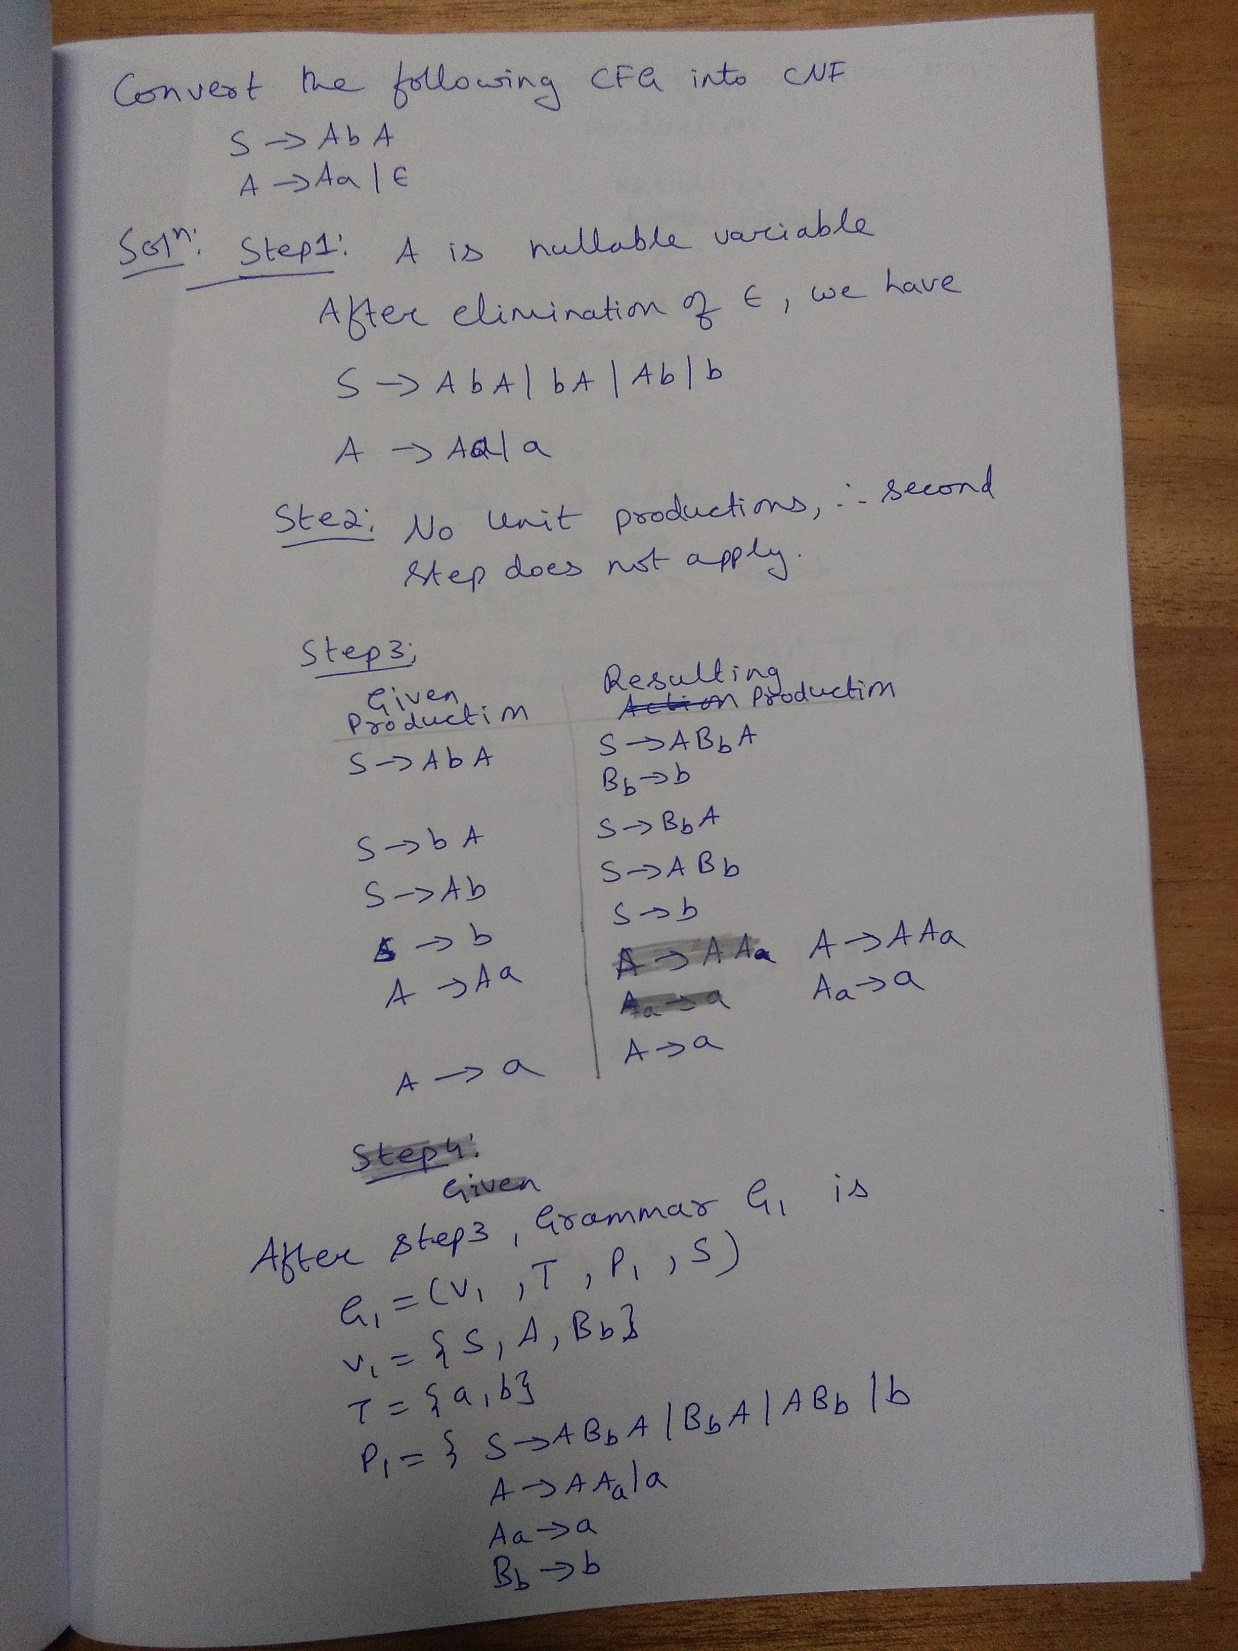 Convert the following CFG into CNF
S → AbA
A → Aa | ε
Solⁿ: Step1: A is nullable variable
After elimination of ε, we have
S → AbA | bA | Ab | b
A → Aa | a
Ste2: No Unit productions, ∴ second
step does not apply.
Step3;
Given Production
Resulting Action Production
S → AbA
S → AB_bA
B_b → b
S → bA
S → B_bA
S → Ab
S → AB_b
S → b
S → b
A → Aa
A → AA_a A → AA_a
A_a → a A_a → a
A → a
A → a
Step4:
Given
After step3, Grammar G₁ is
G₁ = (V₁, T, P₁, S)
V₁ = {S, A, B_b}
T = {a, b}
P₁ = { S → AB_bA | B_bA | AB_b | b
A → AA_a | a
A_a → a
B_b → b